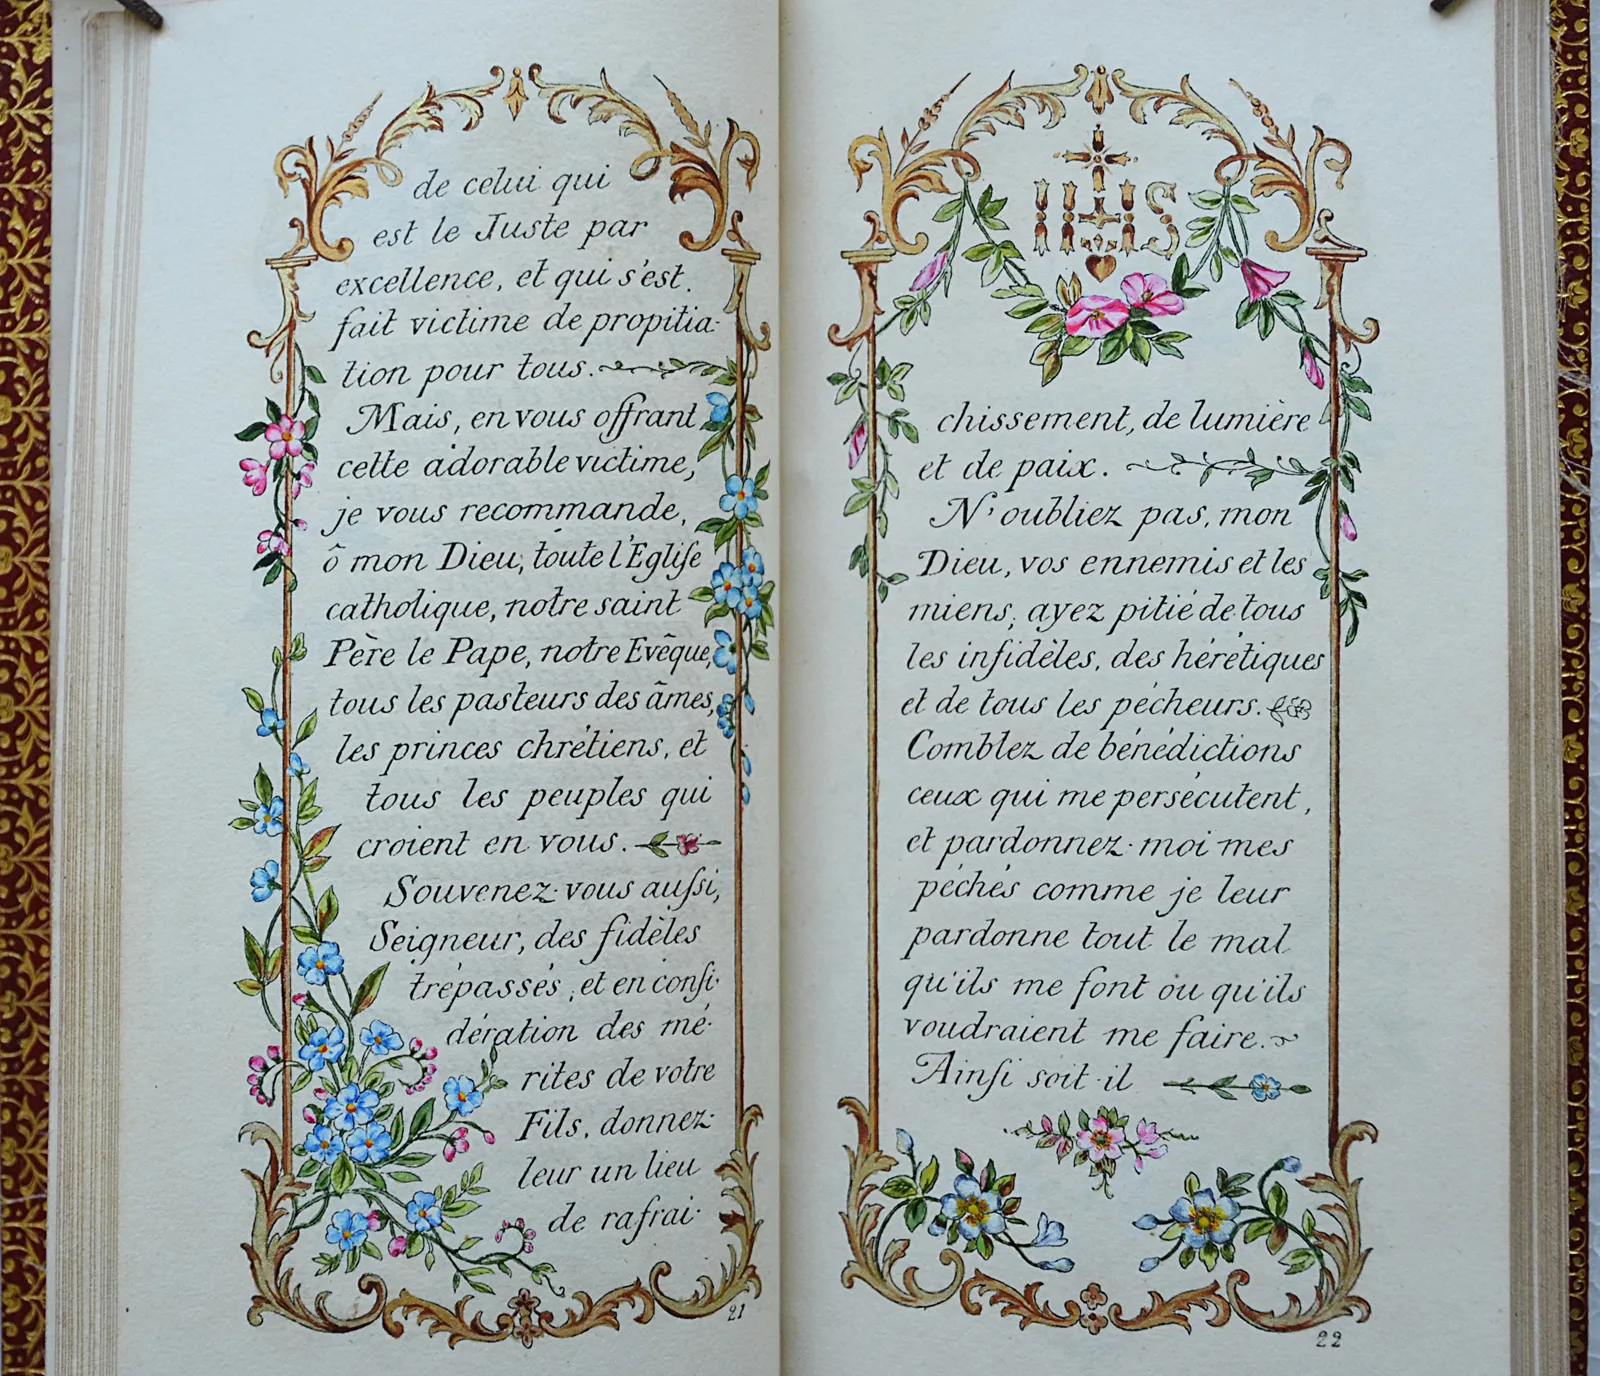 de celui qui
est le Juste par
excellence, et qui s'est.
fait victime de propitia-
tion pour tous.
Mais, en vous offrant
cette adorable victime,
je vous recommande,
ô mon Dieu, toute l'Egliſe
catholique, notre saint
Père le Pape, notre Evêque,
tous les pasteurs des âmes,
les princes chrétiens, et
tous les peuples qui
croient en vous.
Souvenez-vous auſsi,
Seigneur, des fidèles
trépassés, et en conſi-
dération des mé-
rites de votre
Fils, donnez-
leur un lieu
de rafraî-
21
IHS
chissement, de lumière
et de paix.
N'oubliez pas, mon
Dieu, vos ennemis et les
miens, ayez pitié de tous
les infidèles, des hérétiques
et de tous les pécheurs.
Comblez de bénédictions
ceux qui me persécutent,
et pardonnez-moi mes
péchés comme je leur
pardonne tout le mal
qu'ils me font ou qu'ils
voudraient me faire.
Ainſi soit-il
22